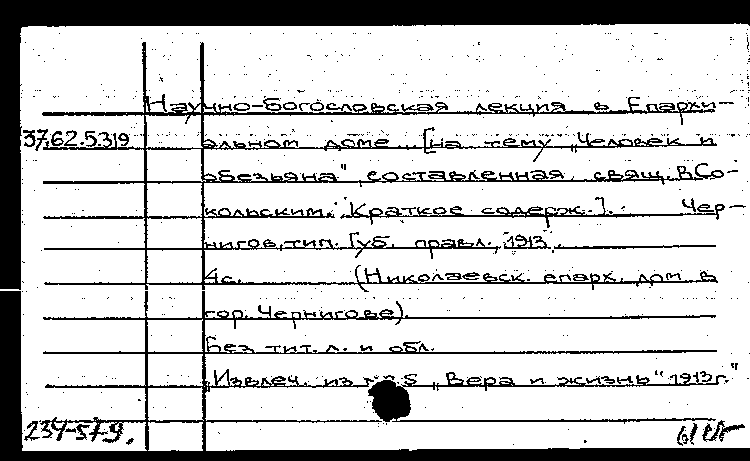 Научно-богословская лекция в Епархи-
37.62.5.319 альном доме [на тему „Человек и
обезьяна", составленная свящ. В.Со-
кольским. Краткое содерж.]. Чер-
нигов, тип. Губ. правл., 1913.
4с. (Николаевск. епарх. дом в
гор. Чернигове).
Без тит. л. и обл.
„Извлеч. из №5 „Вера и жизнь" 1913г."
234-57-9.